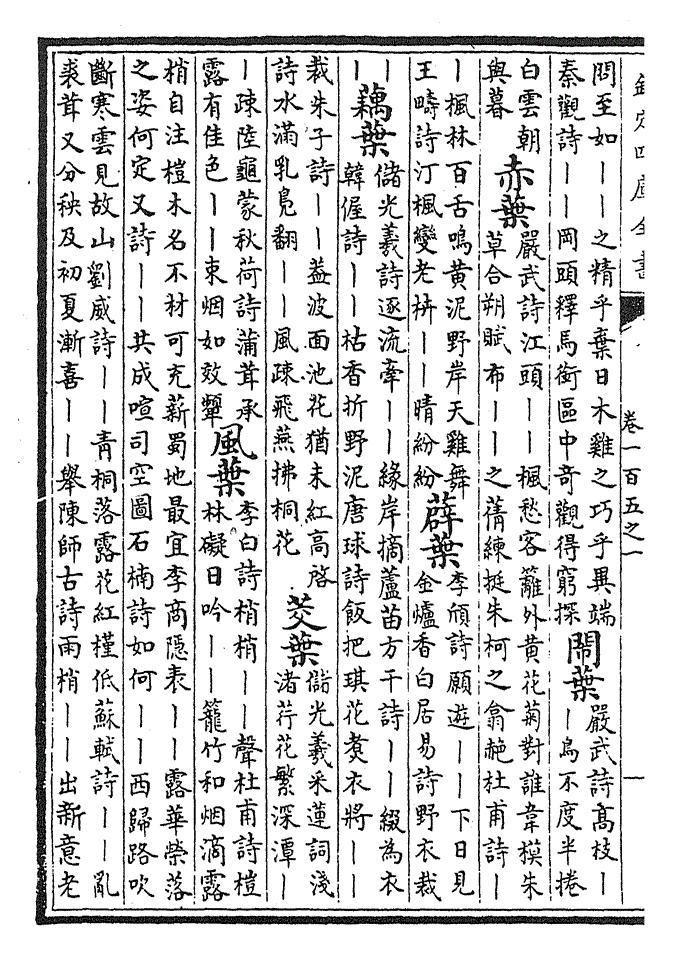 欽定四庫全書
卷一百五之一
一
問至如——之精乎棄日木雞之巧乎異端
秦觀詩——岡頭釋馬銜區中奇觀得窮探
鬧葉
嚴武詩髙枝—
—鳥不度半捲
白雲朝
與暮
赤葉
嚴武詩江頭——楓愁客籬外黄花菊對誰韋模朱
草合朔賦布——之蒨練挺朱柯之翕赩杜甫詩—
—楓林百舌鳴黄泥野岸天雞舞
王疇詩汀楓變老枿——晴紛紛
薜葉
李頎詩願遊——下日見
金爐香白居易詩野衣裁
—
—
藕葉
儲光羲詩逐流牽——緣岸摘蘆苗方干詩——綴為衣
韓偓詩——枯香折野泥唐球詩飯把琪花煑衣將——
裁朱子詩——葢波面池花猶未紅高啓
詩水滿乳鳬翻——風疎飛燕拂桐花
芡葉
儲光羲采蓮詞淺
渚荇花繁深潭—
—疎陸龜蒙秋荷詩蒲茸承
露有佳色——束烟如效顰
風葉
李白詩梢梢——聲杜甫詩榿
林礙日吟——籠竹和烟滴露
梢自注榿木名不材可充薪蜀地最宜李商隐表——露華榮落
之姿何定又詩——共成喧司空圖石楠詩如何——西歸路吹
斷寒雲見故山劉威詩——青桐落露花紅槿低蘇軾詩——亂
裘茸又分秧及初夏漸喜——舉陳師古詩雨梢——出新意老